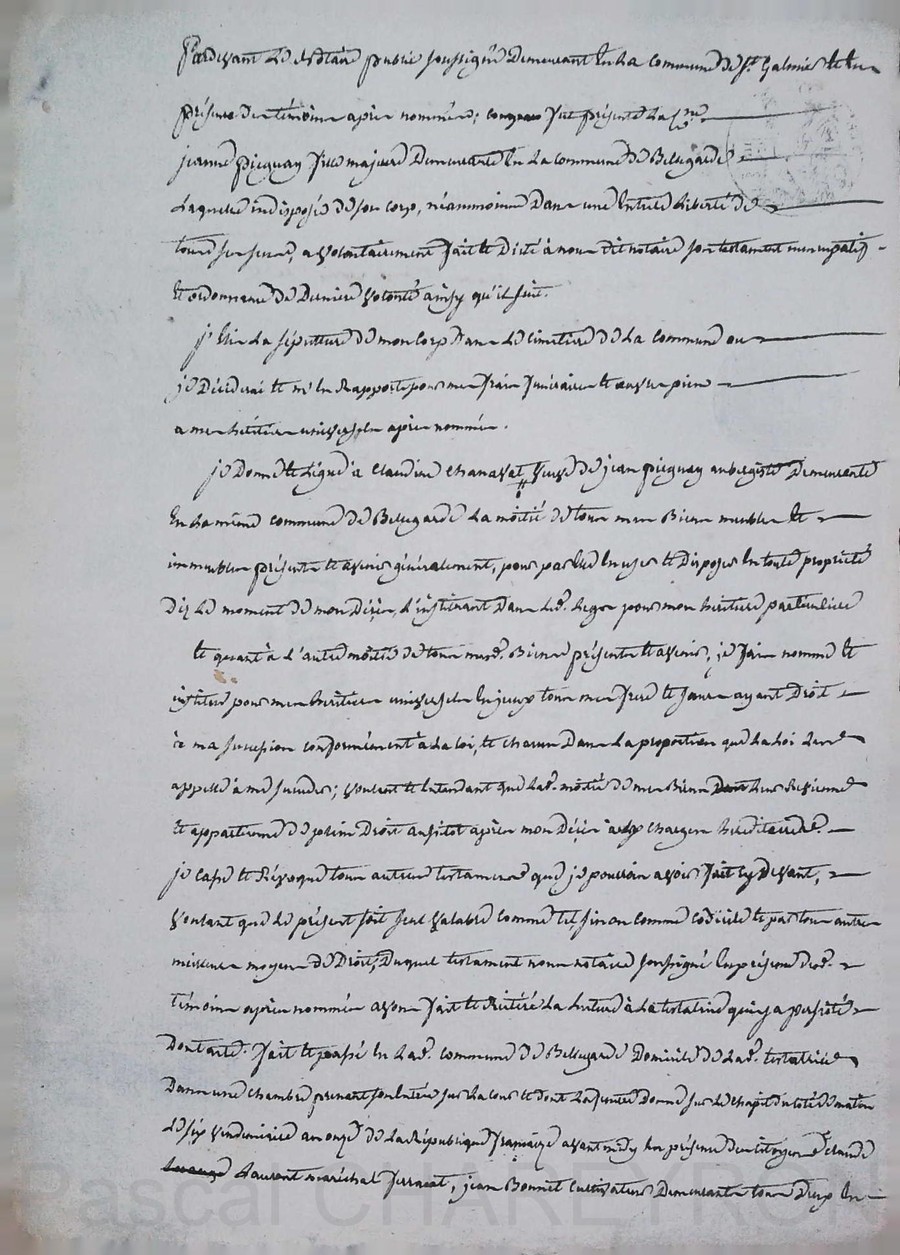 Pardevant Le Notaire public soussigné Demeurant En La commune de St. Galmier Et En
présence des témoins apres nommés; fut présente La Cne.
jeanne picquay fille majeure Demeurante En La commune de Bellegarde
Laquelle indisposée de son corp, néammoins Dans une Entiere Liberté de
tous ses sens, a volontairement fait Et Dicté à nous dit notaire son testament nuncupatif
Et ordonnance de Derniere volonté ainsy qu'il suit.
j'Elis La sépulture de mon corp Dans Le cimetiere de La commune ou
je Décéderai Et m'En Rapporte pour mes frais funéraires Et œuvres pies
a mes héritiers universels apres nommés.
je Donne Et Légue a Claudine Chanavat veuve de jean picquay aubergiste Demeurante
En La même commune de Bellegarde La moitié de tous mes Biens meubles Et
immeubles présents Et avenir généralement, pour par Elle En user Et Disposer En toute propriété
Dez Le moment de mon Décès, L'instituant Dans Led. Legs pour mon héritiere particuliere
Et quant à L'autre moitié de tous mesd. Biens présents Et avenir, je fais nomme Et
institue pour mes héritiers universels Engeux tous mes frere Et sœurs ayant Droit
à ma succession conformément à La loi, Et chacun Dans La proportion que La Loi Les
appelle à me succeder; voulant Et Entendant que Lad. moitié de mes Biens Leur Revienne
Et appartienne de plein Droit aussitot après mon Décès aux charges héréditaires.
je casse Et Révoque tous autres testaments que je pourrois avoir fait cy devant,
voulant que Le présent soit seul valable comme tel, sinon comme codicile Et par tous autres
meilleurs moyens de Droit; Duquel testament nous notaire soussigné En présence desd.
témoins après nommés avons fait Et Réitéré La Lecture à La testatrice qui y a persisté
Dont acte. fait Et passé En Lad. commune de Bellegarde Domicile de Lad. testatrice
Dans une chambre prenant son Entrée sur La cour Et dont La fenetre Donne sur Le du coté de matin
Le six vendemiaire an onze de La République française avant midy En présence des citoyens Claude
Laurent maréchal ferrant, jean Bonnet cultivateur Demeurants tous Deux En
Pascal CHAREYRON